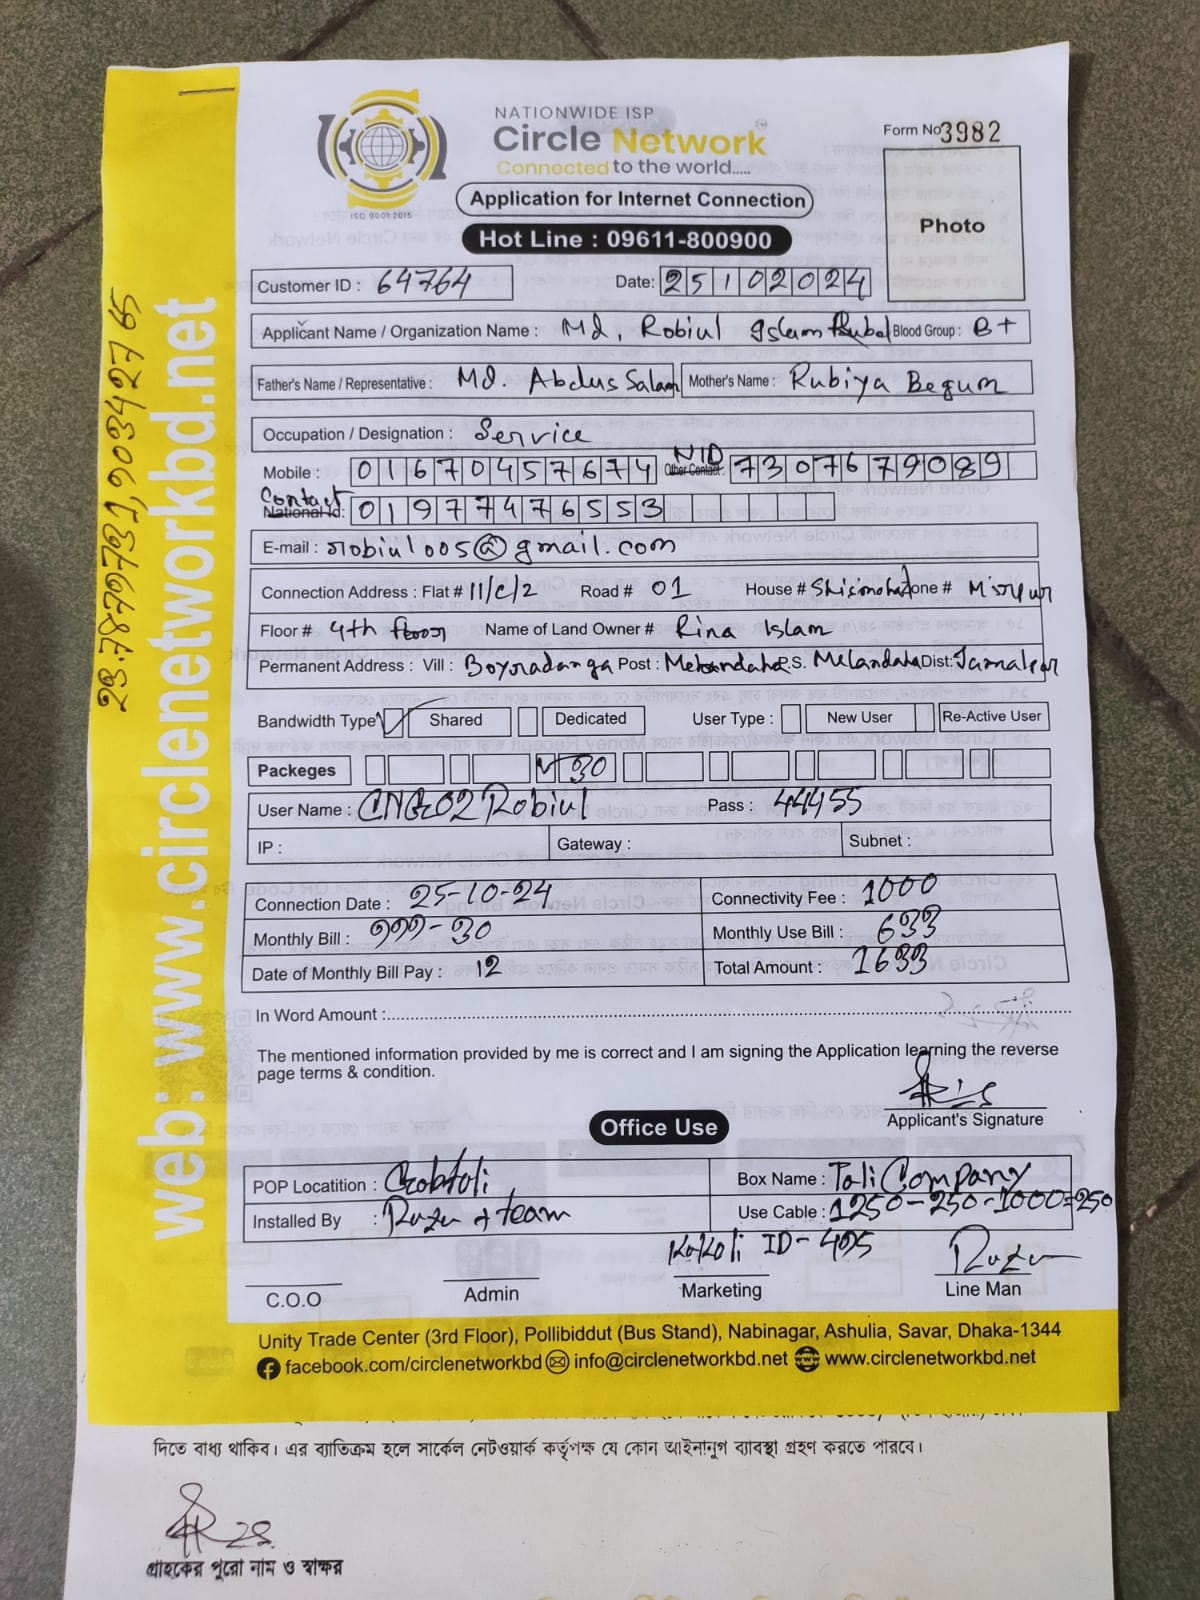 NATIONWIDE ISP
Circle Network
Connected to the world.....
ISO 9001:2015
Form No 3982
Photo
Application for Internet Connection
Hot Line : 09611-800900
Customer ID : 64764
Date: 25102024
Applicant Name / Organization Name : Md, Robiul Islam Rubel Blood Group : B+
Father's Name / Representative : Md. Abdus Salam Mother's Name : Rubiya Begum
Occupation / Designation : Service
Mobile : 01670457674 Other Contact: NID 7307679089
Contact National Id: 01977476553
E-mail : robiul005@gmail.com
Connection Address : Flat # 11/c/2 Road # 01 House # Zone # Mirpur
Floor # 4th floor Name of Land Owner # Rina Islam
Permanent Address : Vill : Boyradanga Post : Melandaha P.S. Melandaha Dist: Jamalpur
Bandwidth Type Shared Dedicated User Type : New User Re-Active User
Packeges 30
User Name : CNG02Robiul Pass : 44455
IP : Gateway : Subnet :
Connection Date : 25-10-24 Connectivity Fee : 1000
Monthly Bill : 999-30 Monthly Use Bill : 633
Date of Monthly Bill Pay : 12 Total Amount : 1633
In Word Amount :
The mentioned information provided by me is correct and I am signing the Application learning the reverse
page terms & condition.
Applicant's Signature
Office Use
POP Locatition : Gobtoli Box Name : Tali Company
Installed By : Razu + team Use Cable : 1250-250-1000=250
KoKoli ID- 405 Razu
C.O.O Admin Marketing Line Man
Unity Trade Center (3rd Floor), Pollibiddut (Bus Stand), Nabinagar, Ashulia, Savar, Dhaka-1344
facebook.com/circlenetworkbd info@circlenetworkbd.net www.circlenetworkbd.net
web: www.circlenetworkbd.net
23.7879791,90.342765
দিতে বাধ্য থাকিব। এর ব্যতিক্রম হলে সার্কেল নেটওয়ার্ক কর্তৃপক্ষ যে কোন আইনানুগ ব্যাবস্থা গ্রহণ করতে পারবে।
গ্রাহকের পুরো নাম ও স্বাক্ষর